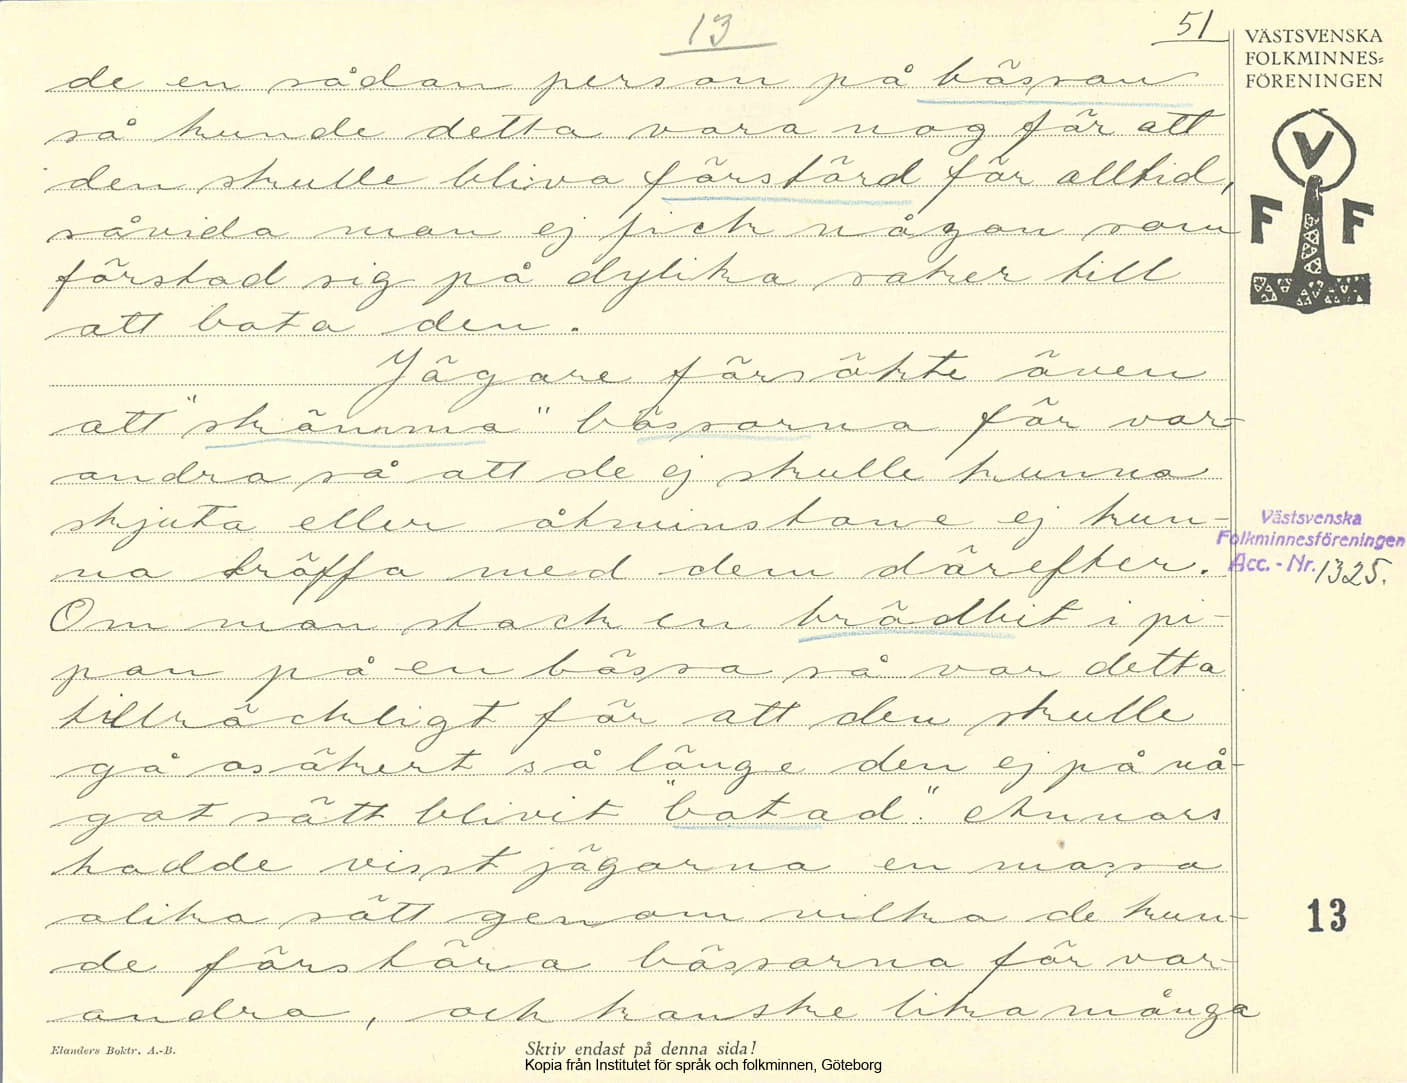 13
51
VÄSTSVENSKA
FOLKMINNES=
FÖRENINGEN
V
F F
de en sådan person på bössan
så kunde detta vara nog för att
den skulle bliva förstörd för alltid,
såvida man ej fick någon som
förstod sig på dylika saker till
att bota den.
Jägare försökte även
att "skämma" bössorna för var-
andra så att de ej skulle kunna
skjuta eller åtminstone ej kun-
na träffa med dem därefter.
Om man stack en brödbit i pi-
pan på en bössa så var detta
tillräckligt för att den skulle
gå osäkert så länge den ej på nå-
got sätt blivit "botad". Annars
hadde visst jägarna en massa
olika sätt genom vilka de kun-
de förstöra bössorna för var-
andra, och kanske lika många
Västsvenska
Folkminnesföreningen
Acc. - Nr. 1325.
13
Elanders Boktr. A.-B.
Skriv endast på denna sida!
Kopia från Institutet för språk och folkminnen, Göteborg